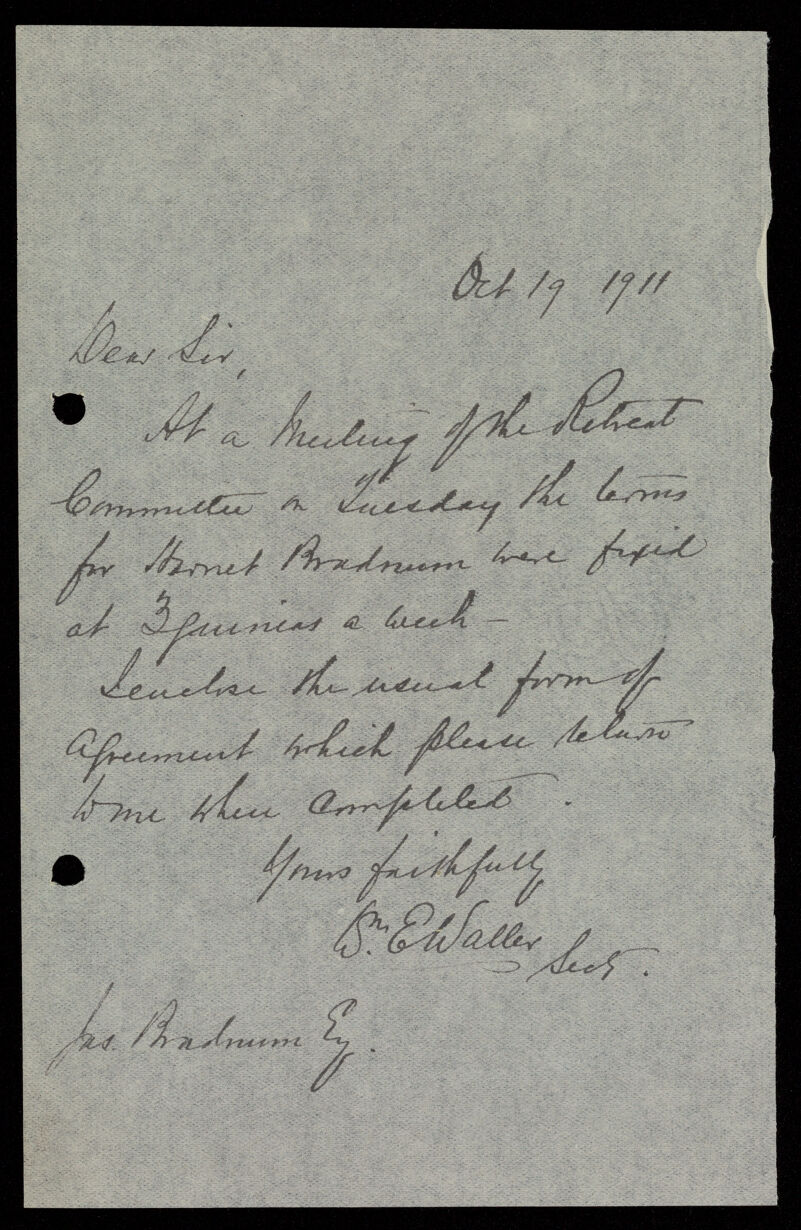 Oct 19 1911
Dear Sir,
At a Meeting of the Retreat
Committee on Tuesday the terms
for Harriet Bradnum were fixed
at 3 guineas a week —
I enclose the usual form of
Agreement which please return
to me when completed.
Yours faithfully
Wm. E Waller Secy.
Jas. Bradnum Esq.